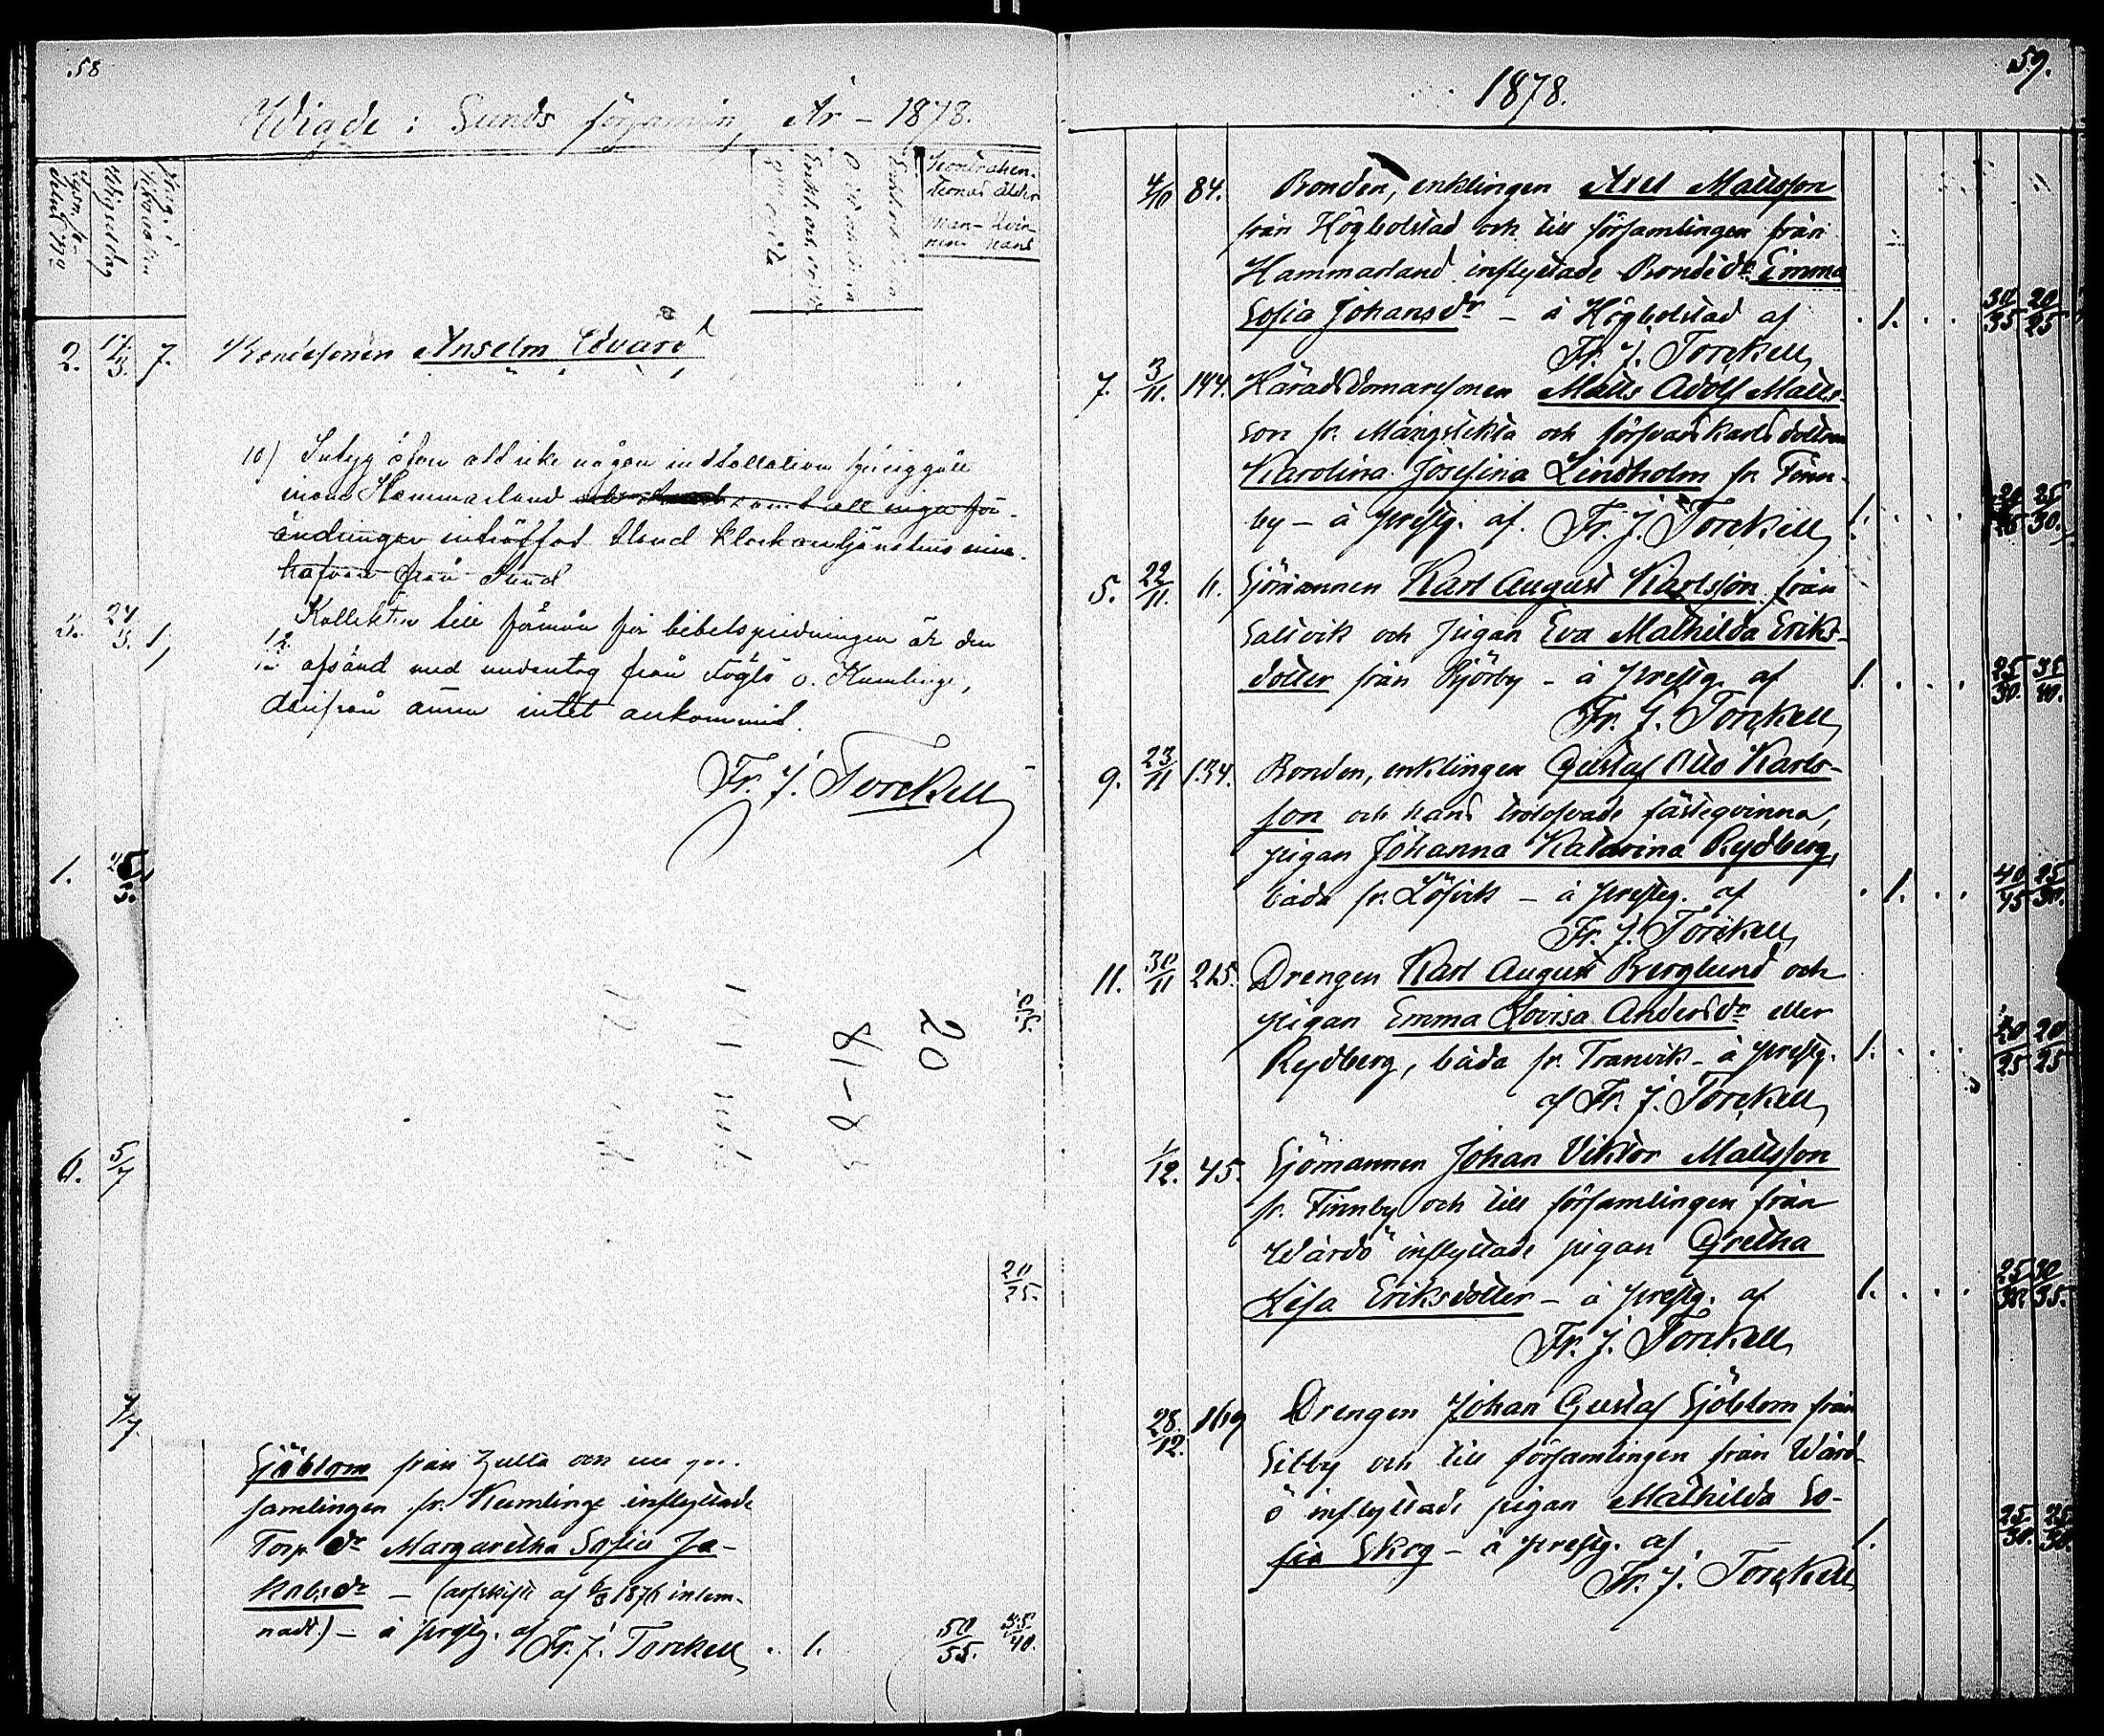 58
Wigde i Sunds församlin, År - 1878.
Kontrahen-
ternas ålder
Man- Qvin-
nens nans
2. 17/3. 7. Bondesonen Anselm Edvard
10) Intyg öfver att icke någon installation
inom Hammarland samt att inga för-
ändringar inträffat bland klockaretjänstens inne-
hafvare från Sund
24/3. 1,
Kollekten till förmån för bibelspridningen är den
12/12 afsänd med undantag från Föglö o. Kumlinge,
derifrån ännu intet ankommit.
Fr. J. Torckell
1. 25/5.
20
8-18
6. 5/7
20/25.
7/7.
Sjöblom från
samlingen fr. Kumlinge inflyttade
Torp. dr Margaretha Sofia Ja-
kobsdr — (arfskift af 1876 inlem-
nadt.) — å prestg. af Fr. J. Torckell . 1. 50/55. 35/40.
59.
1878.
4/10 84. Bonden, enklingen Axel Mattsson
från Högbolstad och till församlingen från
Hammarland inflyttade Bondedr. Emma
Sofia Johansdr — å Högbolstad af . 1. . . 30/35 20/25
Fr. J. Torckell
7. 3/11. 144. Häradsdomaresonen Matts Adolf Matts-
son fr. Mångstekta och försvarskarlsdottern
Karolina Josefina Lindholm fr. Finn-
by — å prestg. af. Fr. J. Torckell 1. . . . 25/30.
5. 22/11. 11. Sjömannen Karl August Karlsson från
Saltvik och pigan Eva Mathilda Eriks-
dotter från Björby — å prestg. af 1. . . . 25/30. 35/40.
Fr. J. Torckell
9. 23/11 134. Bonden, enklingen Gustaf Otto Karls-
son och hans trolofvade fästeqvinna,
pigan Johanna Katarina Rydberg,
båda fr. Löfvik — å prestg. af . 1. . . 40/45 25/30.
Fr. J. Torckell
11. 30/11 215. Drengen Karl August Berglund och
pigan Emma Lovisa Andersdr eller
Rydberg, båda fr. Tranvik — å prestg. 1. . . . 20/25 20/25
af Fr. J. Torckell
1/12. 45. Sjömannen Johan Viktor Mattsson
fr. Finnby och till församlingen från
Wårdö inflyttade pigan Gretha
Lisa Eriksdotter — å prestg. af 1. . . . 25/30. 30/35.
Fr. J. Torckell
28./12. 169 Drengen Johan Gustaf Sjöblom från
Sibby och till församlingen från Wård-
ö inflyttade pigan Mathilda So-
fia Skog — å prestg. af 1. 25/30. 25/30.
Fr. J. Torckell